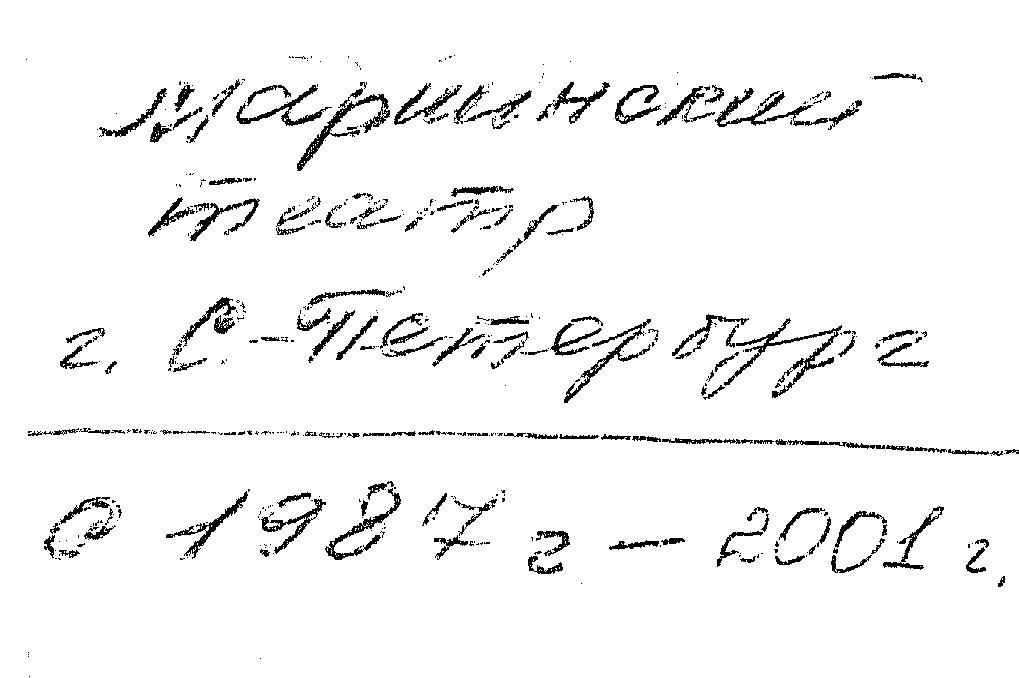 Мариинский
театр
г. С.-Петербург
с 1987 г – 2001 г.